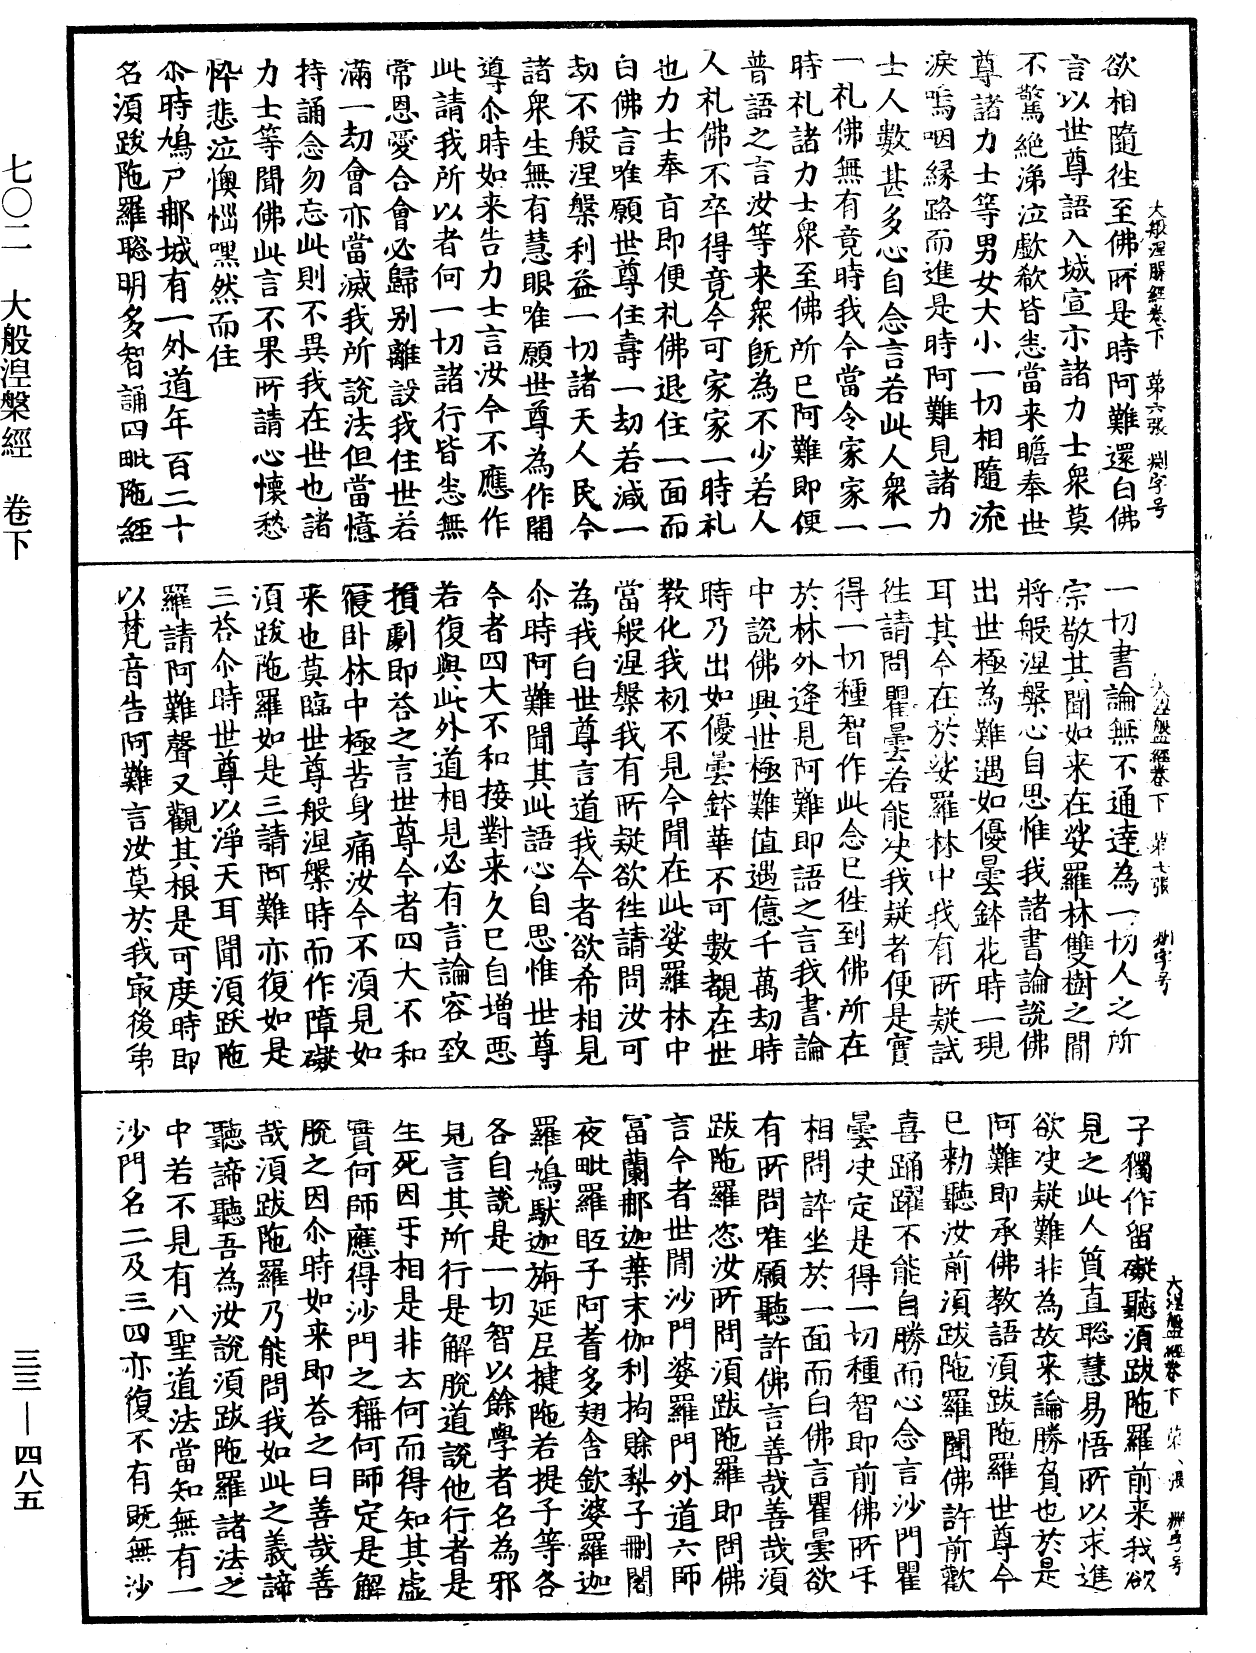 欲相隨徃至佛所是時阿難還白佛
言以世尊語入城宣示諸力士衆莫
不驚絶涕泣歔欷皆悉當来瞻奉世
尊諸力士等男女大小一切相隨流
淚嗚咽緣路而進是時阿難見諸力
士人數甚多心自念言若此人衆一
一礼佛無有竟時我今當令家家一
時礼諸力士衆至佛所已阿難即便
普語之言汝等来衆既為不少若人
人礼佛不卒得竟今可家家一時礼
也力士奉言即便礼佛退住一面而
白佛言唯願世尊住壽一劫若減一
劫不般涅槃利益一切諸天人民今
諸衆生無有慧眼唯願世尊為作開
導尒時如来告力士言汝今不應作
此請我所以者何一切諸行皆悉無
常恩愛合會必歸别離設我住世若
滿一劫會亦當滅我所說法但當憶
持誦念勿忘此則不異我在世也諸
力士等聞佛此言不果所請心懷愁
悴悲泣懊惱嘿然而住
尒時鳩尸那城有一外道年百二十
名湏跋陁羅聡明多智誦四毗陁經
大般涅槃經卷下 苐六張 㓨字号
一切書論無不通逹為一切人之所
宗敬其聞如来在娑羅林雙樹之間
將般涅槃心自思惟我諸書論說佛
出世極為難遇如優曇鉢花時一現
耳其今在於娑羅林中我有所疑試
徃請問瞿曇若能決我疑者便是實
得一切種智作此念已徃到佛所在
於林外逢見阿難即語之言我書論
中說佛興世極難值遇億千萬劫時
時乃出如優曇鉢華不可數覩在世
教化我初不見今聞在此娑羅林中
當般涅槃我有所疑欲徃請問汝可
為我白世尊言道我今者欲希相見
尒時阿難聞其此語心自思惟世尊
今者四大不和接對来久已自增惡
若復與此外道相見必有言論容致
損劇即荅之言世尊今者四大不和
寢卧林中極苦身痛汝今不湏見如
来也莫臨世尊般涅槃時而作障礙
湏跋陁羅如是三請阿難亦復如是
三荅尒時世尊以淨天耳聞湏跋陁
羅請阿難聲又觀其根是可度時即
以梵音告阿難言汝莫於我㝡後弟
大涅盤經卷下 苐七張 㓨字号
子獨作留礙聽湏跋陁羅前来我欲
見之此人質直聡慧易悟所以求進
欲決疑難非為故来論勝負也於是
阿難即承佛教語湏跋陁羅世尊今
已勑聽汝前湏跋陁羅聞佛許前歡
喜踊躍不能自勝而心念言沙門瞿
曇決定是得一切種智即前佛所㸦
相問訊坐於一面而白佛言瞿曇欲
有所問唯願聽許佛言善哉善哉湏
跋陁羅恣汝所問湏跋陁羅即問佛
言今者世間沙門婆羅門外道六師
冨蘭那迦葉末伽利拘賒梨子刪闍
夜毗羅胝子阿耆多翅舍欽婆羅迦
羅鳩馱迦旃延尼揵陁若提子等各
各自說是一切智以餘學者名為邪
見言其所行是解脫道說他行者是
生死因㸦相是非云何而得知其虛
實何師應得沙門之稱何師定是解
脫之因尒時如来即荅之曰善哉善
哉湏跋陁羅乃能問我如此之義諦
聽諦聽吾為汝說湏跋陁羅諸法之
中若不見有八聖道法當知無有一
沙門名二及三四亦復不有既無沙
大涅盤經卷下
七〇二 大般涅槃經 卷下
三三—四八五